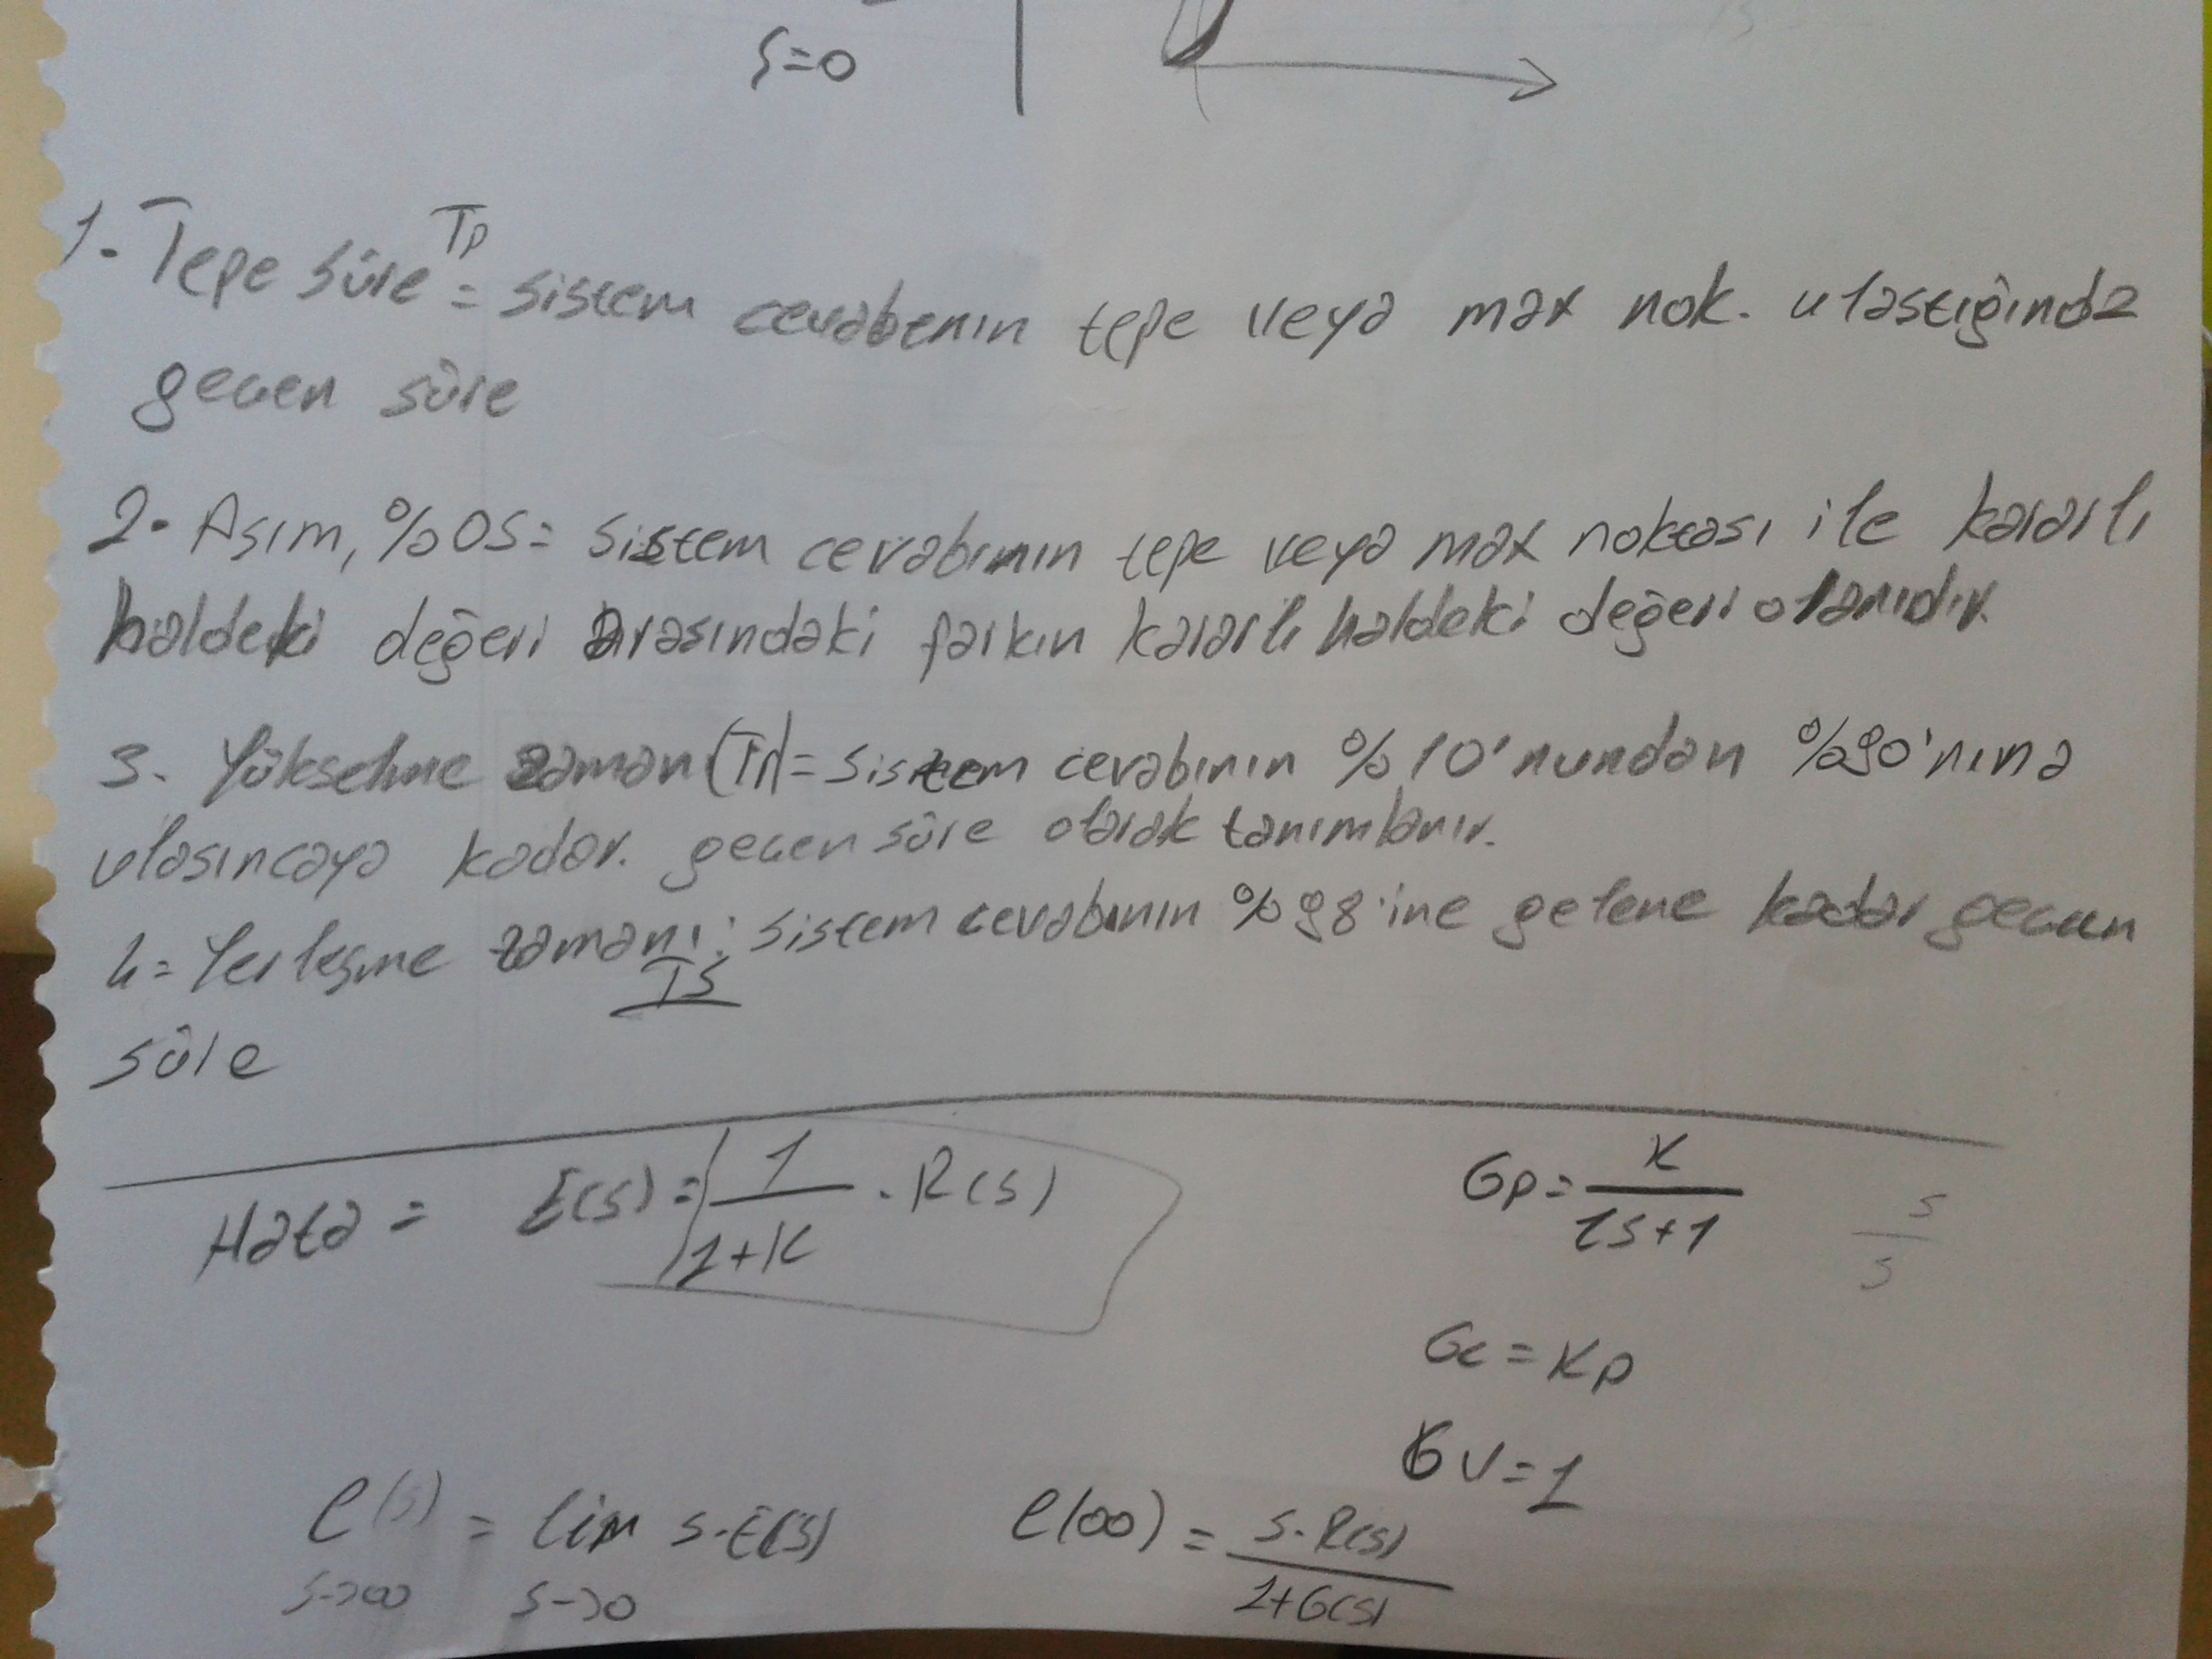 S=0
1- Tepe süre Tp = sistem cevabenın tepe veya max nok. ulastığında
gecen süre
2- Aşım, %OS= sistem cevabının tepe veya max noktası ile kararlı
haldeki değeri arasındaki farkın kararlı haldeki değeri oranıdır.
3- Yükselme zaman (Tr)= sistem cevabının %10'nundan %90'nına
ulasıncaya kadar. gecen süre olarak tanımlanır.
4= Yerleşme zamanı: sistem cevabının %98'ine gelene kadar gecen
Ts
süre
Hata = E(s) = 1/1+K . R(s)
Gp = K/τs+1
s/s
Gc = Kp
Gv=1
e(s) = lim s.E(s) e(∞) = s.R(s)/1+G(s)
s->∞ s->0